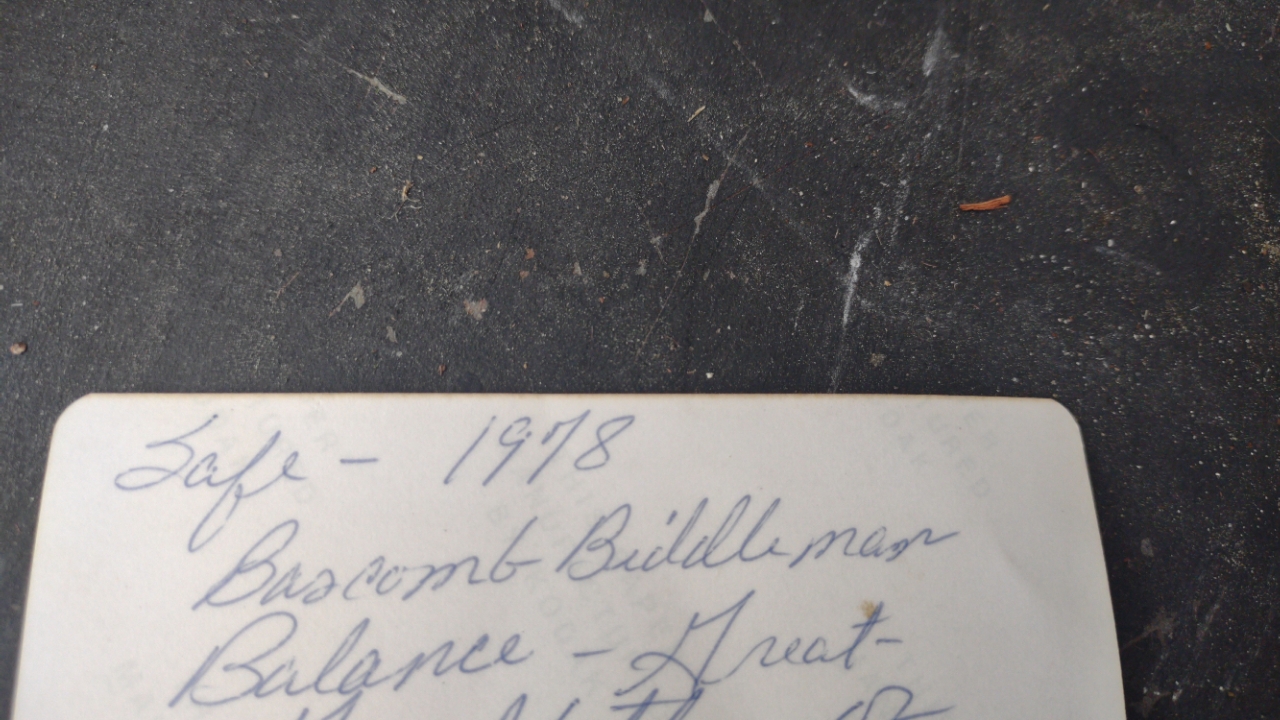 Safe - 1978
Bascomb Biddleman
Balance - Great-